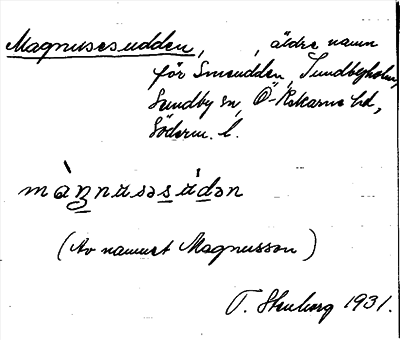 Magnusesudden, , äldre namn
för Smeudden, Sundbyholm,
Sundby sn, Ö-Rekarne hd,
Söderm. l.
màŋnɯsəsɯ́dən
(Av namnet Magnusson)
T. Stenborg 1931.